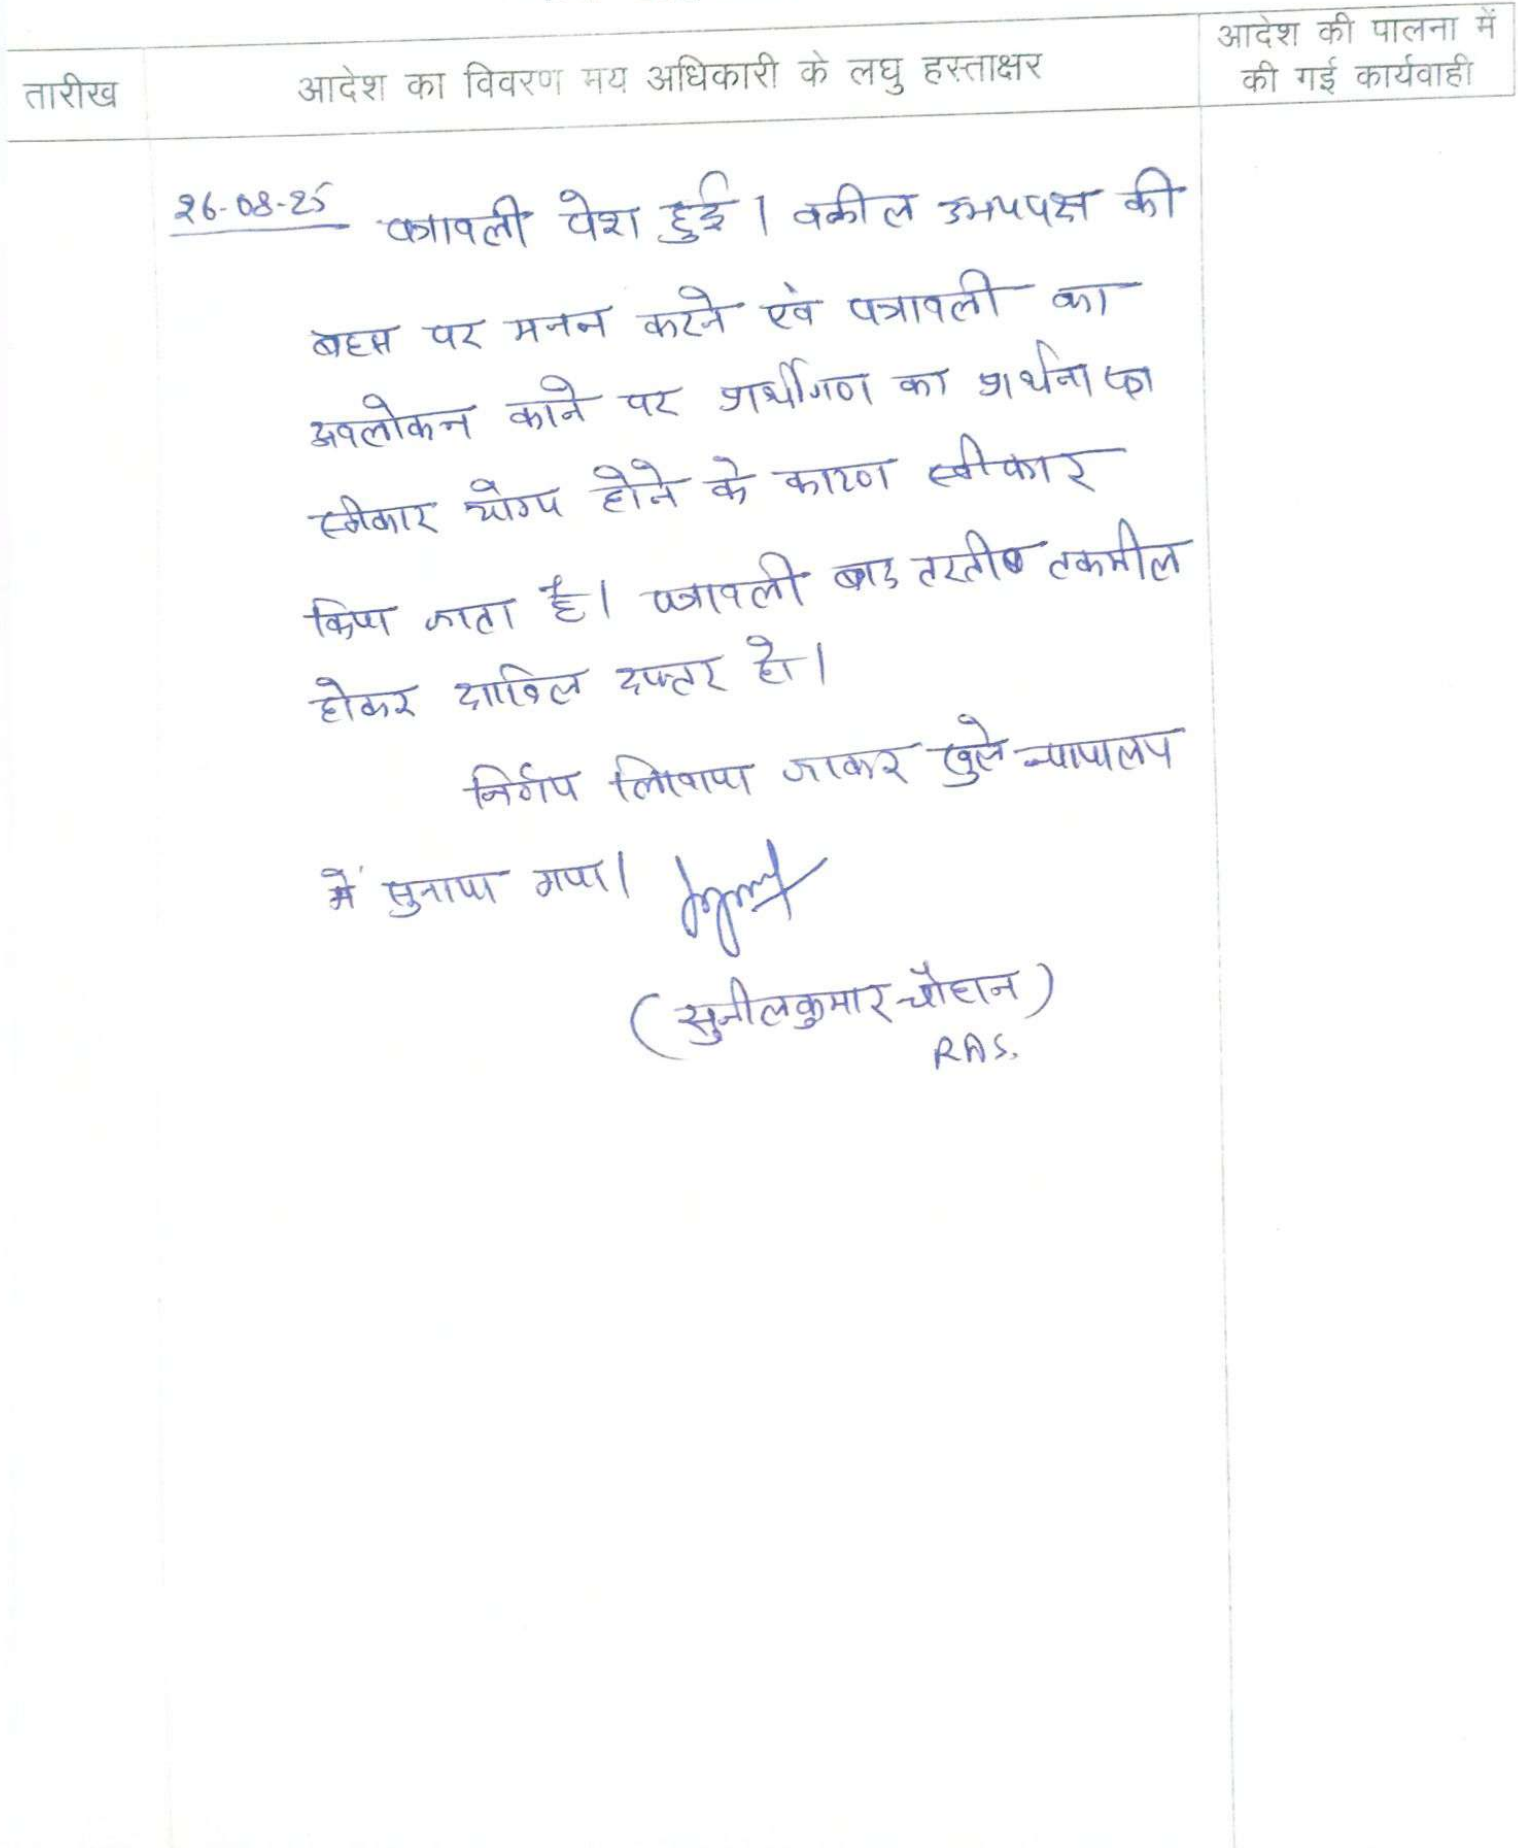 तारीख
आदेश का विवरण मय अधिकारी के लघु हस्ताक्षर
आदेश की पालना में
की गई कार्यवाही
26-08-25 पत्रावली पेश हुई। वकील उभयपक्ष की
बहस पर मनन करने एवं पत्रावली का
अवलोकन करने पर प्रार्थीगण का प्रार्थना पत्र
स्वीकार योग्य होने के कारण स्वीकार
किया जाता है। पत्रावली बाद तरतीब तकमील
होकर दाखिल दफ्तर हो।
निर्णय लिखाया जाकर खुले न्यायालय
में सुनाया गया।
(सुनीलकुमार चौहान)
RAS.